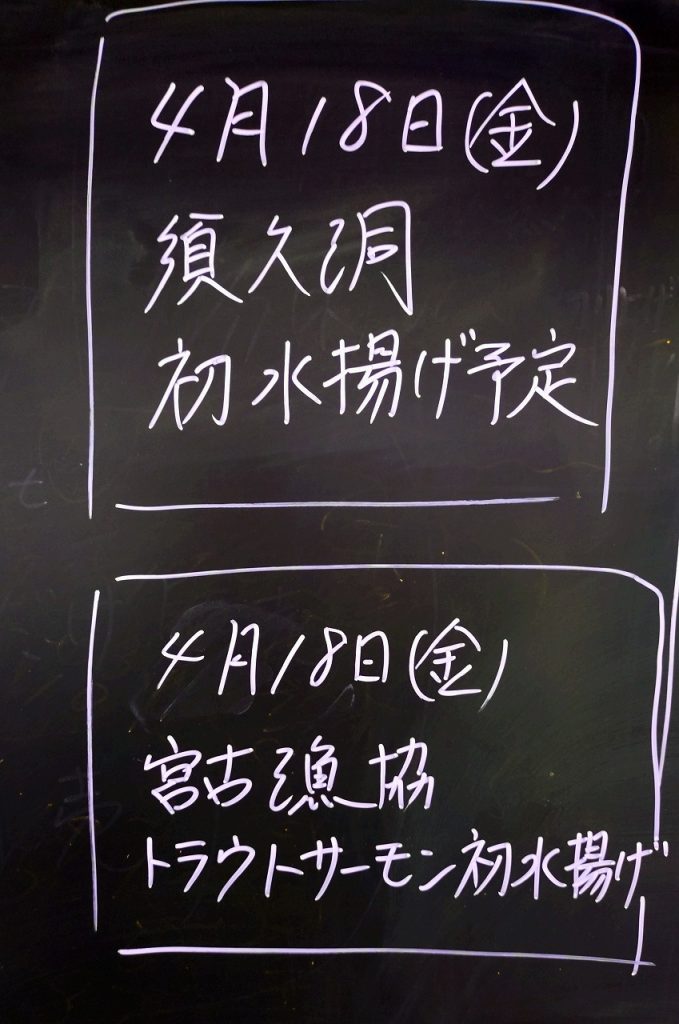 4月18日(金)
須久洞
初水揚げ予定
4月18日(金)
宮古漁協
トラウトサーモン初水揚げ